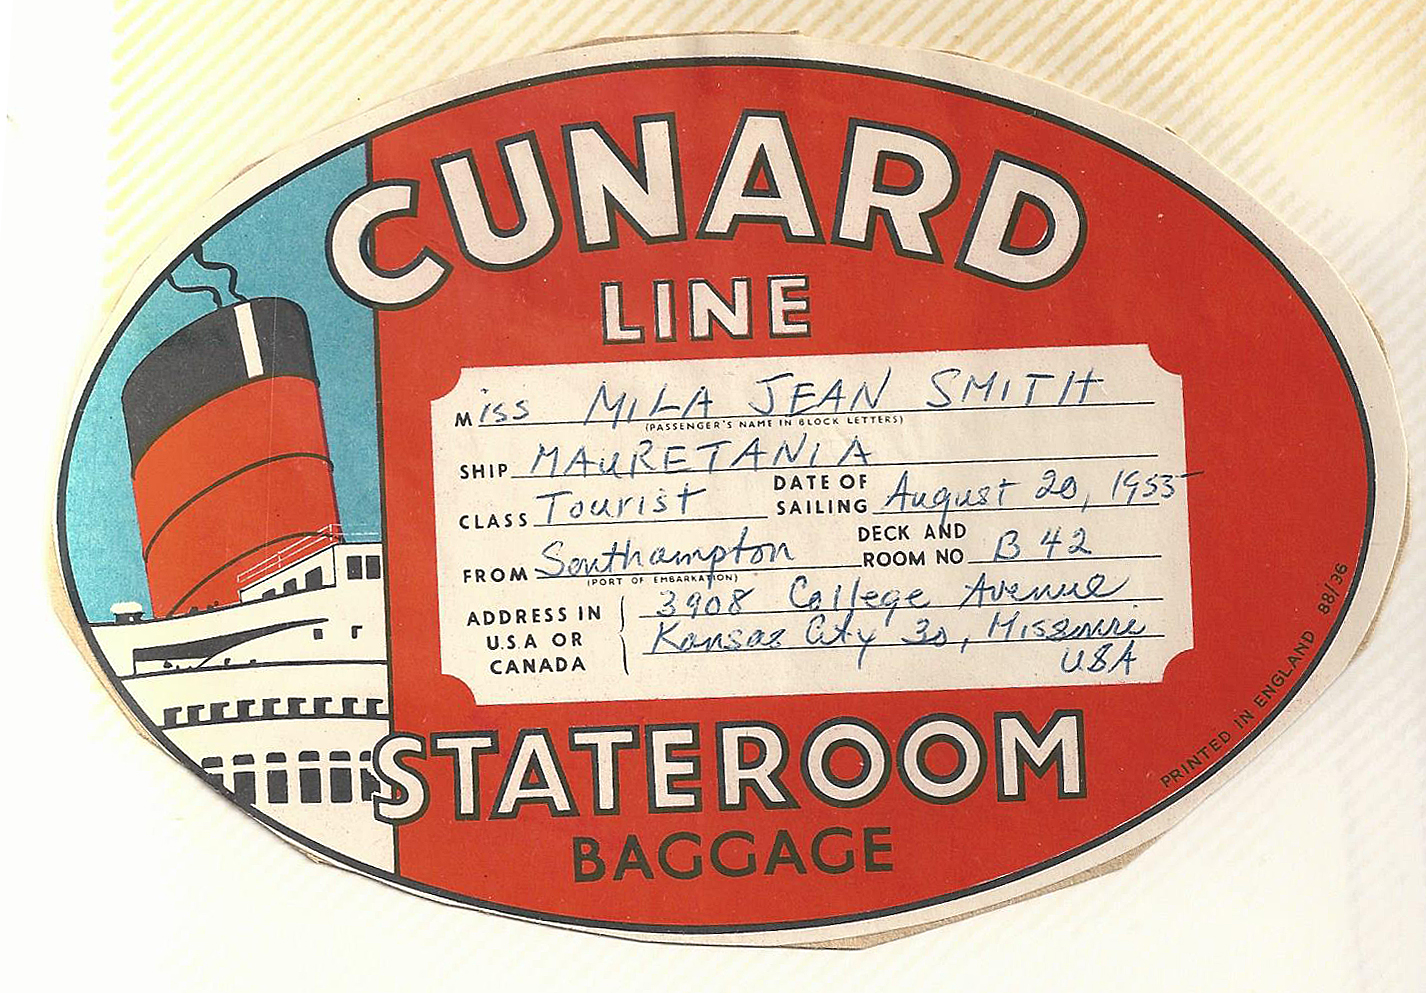 CUNARD
LINE
Miss MILA JEAN SMITH
(PASSENGER'S NAME IN BLOCK LETTERS)
SHIP MAURETANIA
CLASS Tourist DATE OF SAILING August 20, 1955
FROM Southampton DECK AND ROOM NO B 42
(PORT OF EMBARKATION)
ADDRESS IN U.S.A OR CANADA
3908 College Avenue
Kansas City 30, Missouri
USA
STATEROOM
BAGGAGE
PRINTED IN ENGLAND 88/36